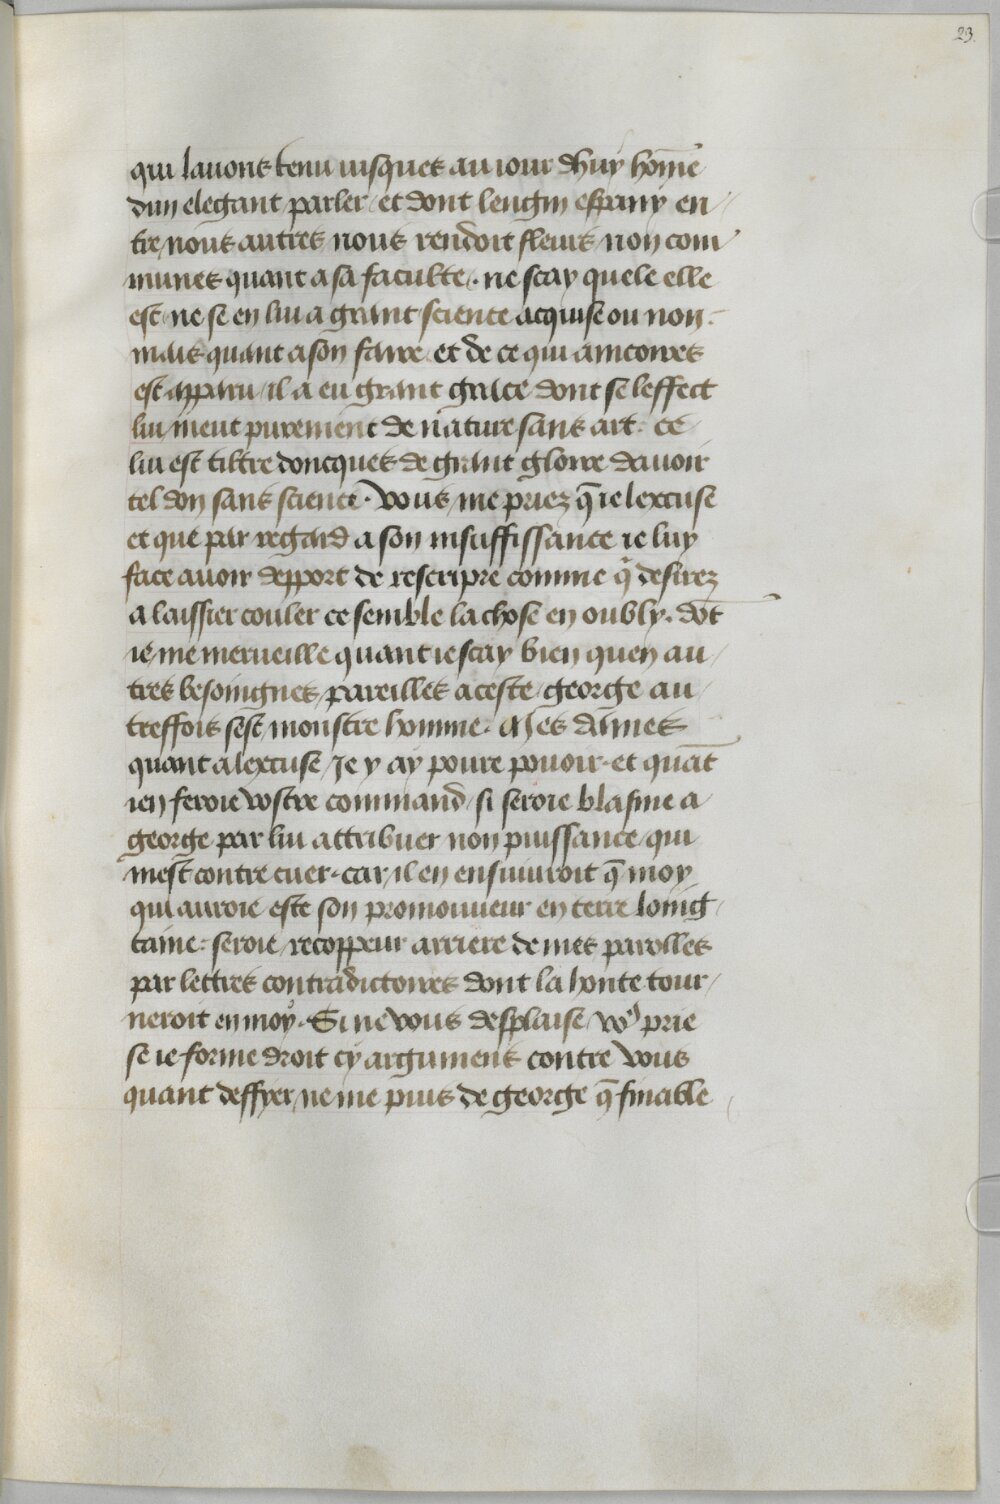 23.
qui lauons tenu iusques au iour dhuy hom̄e
dun elegant parler / et dont lengin espany en /
tre / nous autres nous rendoit fleurs non com /
munes quant a sa faculte . ne scay quele elle
est / ne se en lui a grant science acquise ou non .
mais quant a son faire . et de ce qui aincoires
est apparu / il a eu grant grace dont se leffect
lui / meut purement de nature sans art . ce /
lui est tiltre doncques de grant gloire dauoir
tel don sans science . Vous / me priez q̄ ie lexcuse
et que par regard a son insuffissance ie luy
face auoir depport de rescripre comme q̄ desirez
a laissier couler ce semble la chose en oubly . dōt
ie / me merueille quant ie scay bien quen au /
tres besoingnes / pareilles a ceste / george au /
treffois sest / monstre homme . Mes dames
quant a lexcuse / Je y ay poure pouoir . et quāt
ien feroie vostre command / si seroie blasme a
george par lui attribuer non puissance / qui
mest contre cuer . car / il en ensuiuroit q̄ moy
qui auroie este son promouueur en terre loing /
taine : seroie / recoppeur arriere de mes parolles
par lettres contradictoires dont la honte tour /
neroit en moy . Si ne vous desplaise / voꝰ prie
se ie forme droit cy argument contre vous
quant deffyer / ne me puis de george q̄ finable